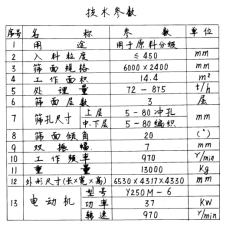 技术参数
序号 名 称 参数 单位
1 用 途 用于原料分级
2 入料粒度 ≤450 mm
3 筛面规格 6000×2400 mm
4 工作面积 14.4 m²
5 处理量 72-815 t/h
6 筛面层数 3 层
7 筛孔尺寸 上层 5-80冲孔 mm
中下层 5-80编织 mm
8 筛面倾角 20 (°)
9 双振幅 7 mm
10 工作频率 970 r/min
11 重量 13000 Kg
12 外形尺寸(长×宽×高) 6530×4317×4330 mm
13 电动机 型号 Y250M-6
功率 37 KW
转速 970 r/min